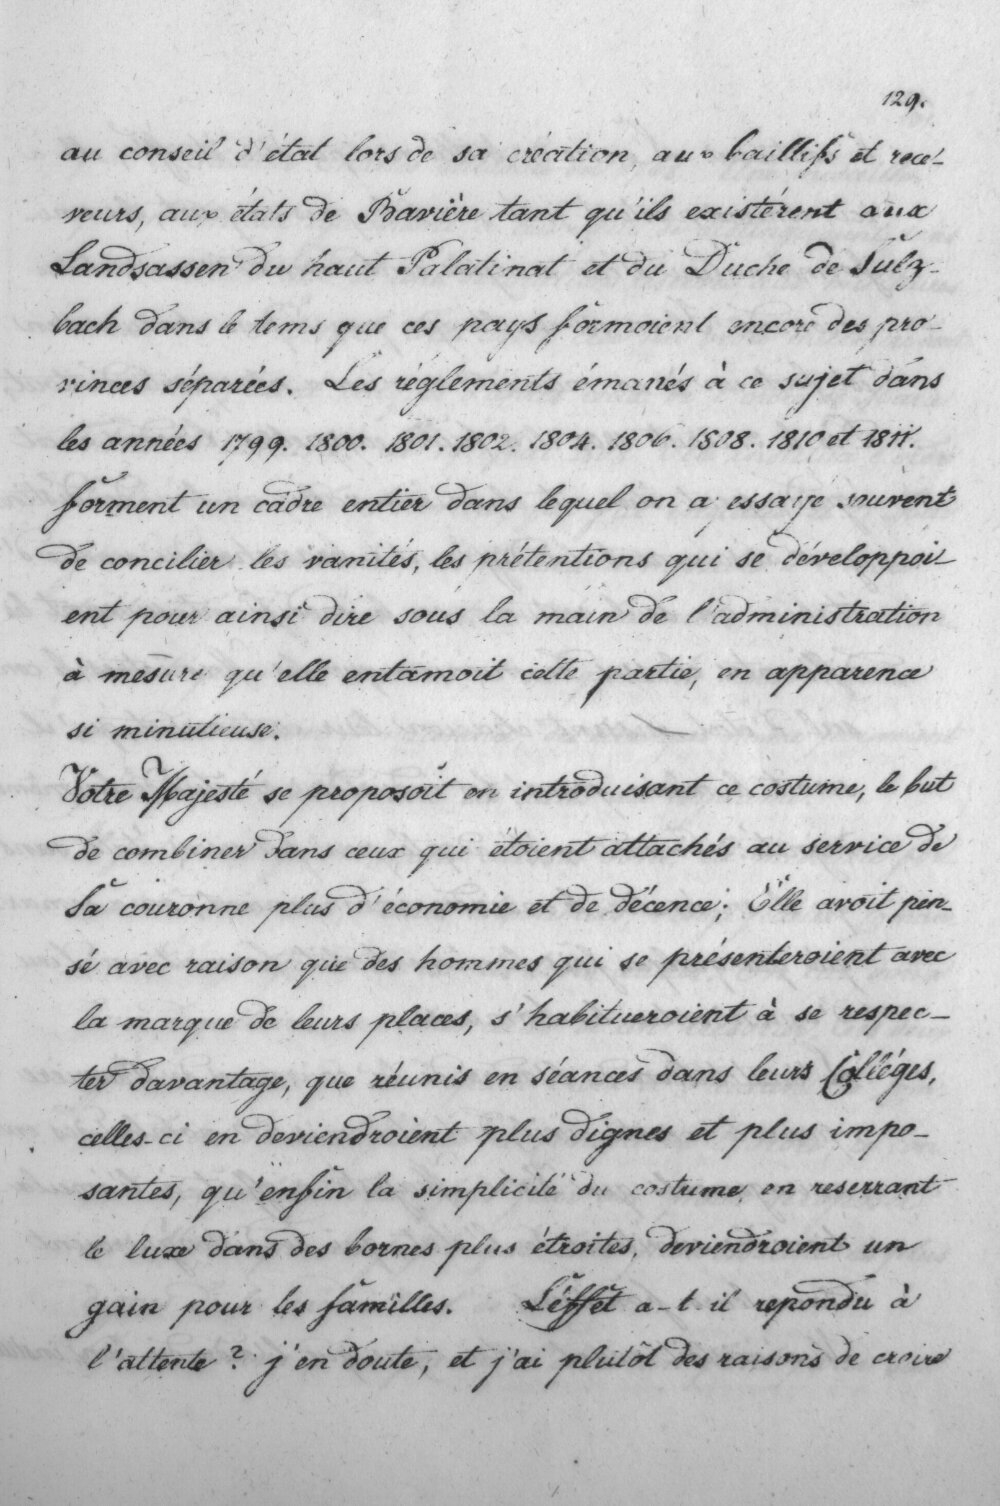 129.
au conseil d'état lors de sa création, aux baillifs et rece-
veurs, aux états de Bavière tant qu'ils existérent aux
Landsassen du haut Palatinat et du Duche de Sulz-
bach dans le tems que ces pays formoient encore des pro-
vinces séparées. Les réglements émanés à ce sujet dans
les années 1799. 1800. 1801. 1802. 1804. 1806. 1808. 1810 et 1811.
forment un cadre entier dans lequel on a essayé souvent
de concilier les vanités, les prétentions qui se développoi-
ent pour ainsi dire sous la main de l'administration
à mesure qu'elle entamoit cette partie, en apparence
si minutieuse.
Votre Majesté se proposoit en introduisant ce costume, le but
de combiner dans ceux qui étoient attachés au service de
Sa couronne plus d'économie et de décence; Elle avoit pen-
sé avec raison que des hommes qui se présenteroient avec
la marque de leurs places, s'habitueroient à se respec-
ter davantage, que réunis en séances dans leurs Colléges,
celles-ci en deviendroient plus dignes et plus impo-
santes, qu'enfin la simplicité du costume, en reserrant
le luxe dans des bornes plus étroites, deviendroient un
gain pour les familles. L'éffet a-t-il repondu à
l'attente? j'en doute, et j'ai plutôt des raisons de croire